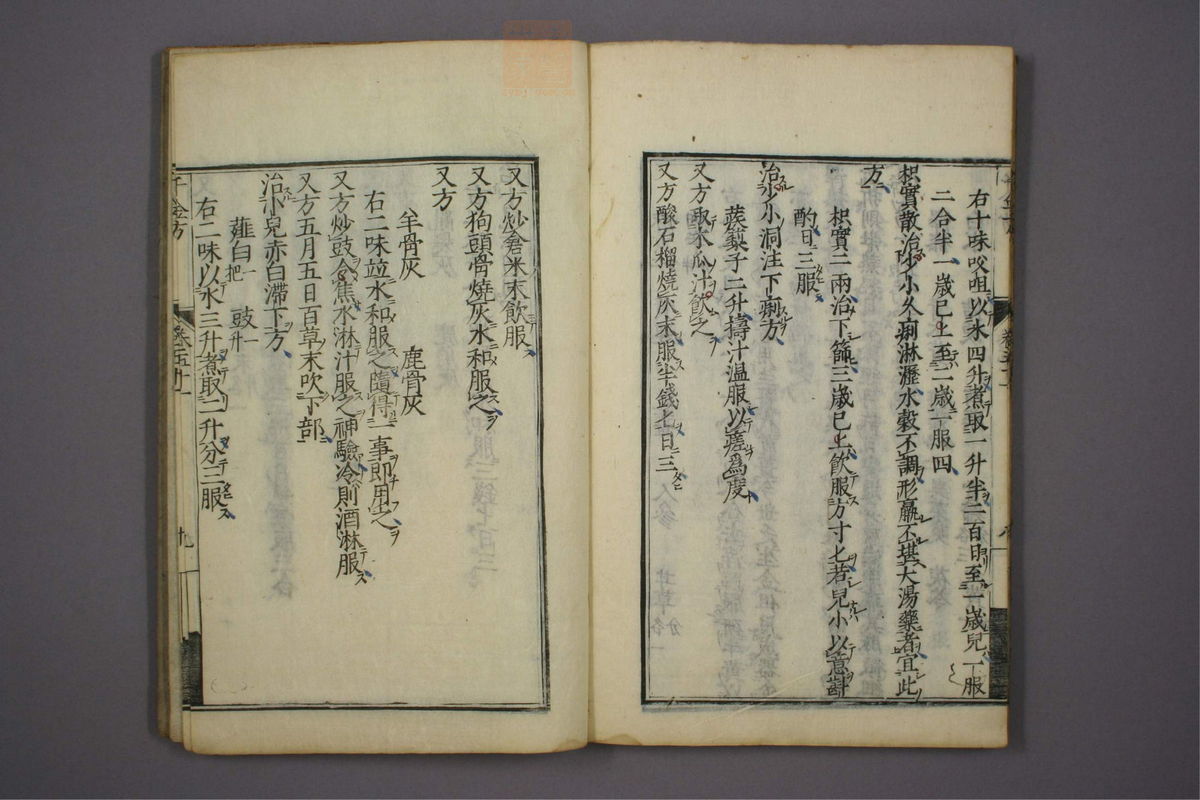 右十味㕮咀以水四升煮取一升半二百日至一歲兒一服
二合半一歲已上至二歲一服四
枳實散治少小久痢淋瀝水穀不調形羸不堪大湯藥者宜此
方
枳實二兩治下篩三歲已上飲服方寸匕若兒小以意斟
酌日三服
治少小洞注下痢方
蒺藜子二升擣汁温服以瘥爲度
又方取木瓜汁飲之
又方酸石榴燒灰末服半錢匕日三
又方炒倉米末飲服
又方狗頭骨燒灰水和服之
又方
羊骨灰　鹿骨灰
右二味竝水和服之隨得一事即用之
又方炒豉令焦水淋汁服之神驗冷則酒淋服
又方五月五日百草末吹下部
治小兒赤白滯下方
薤白一把　豉一升
右二味以水三升煮取二升分三服
千金方
卷五十一
九